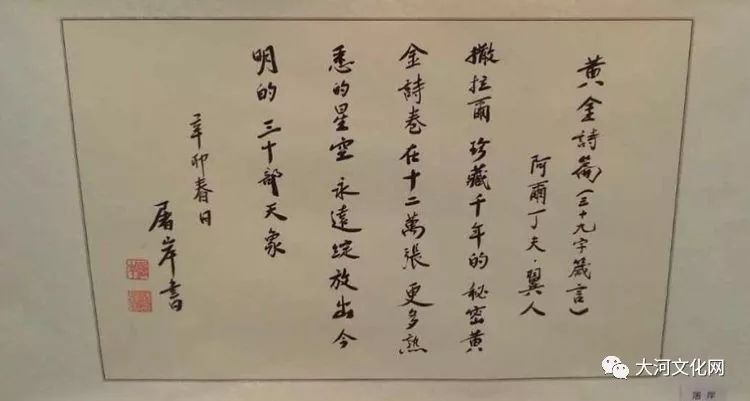 黄金詩篇(三十九字箴言)
阿爾丁夫·翼人
撒拉爾 珍藏千年的秘密黄
金詩卷 在十二萬張 更多熟
悉的星空 永遠綻放出今
明的 三十部天象
辛卯春日
屠岸書
大河文化网
屠 岸